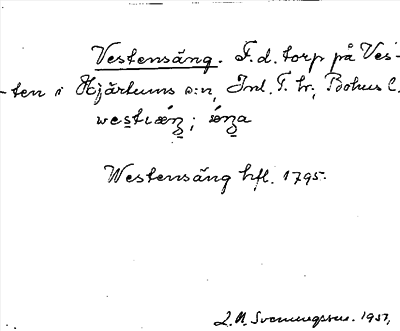 Vestensäng. F.d. torp på Ves-
-ten i Hjärtums s:n, Inl. T. hr; Bohus l.
Westensäng hfl. 1795.
Svenningsson. 1951,